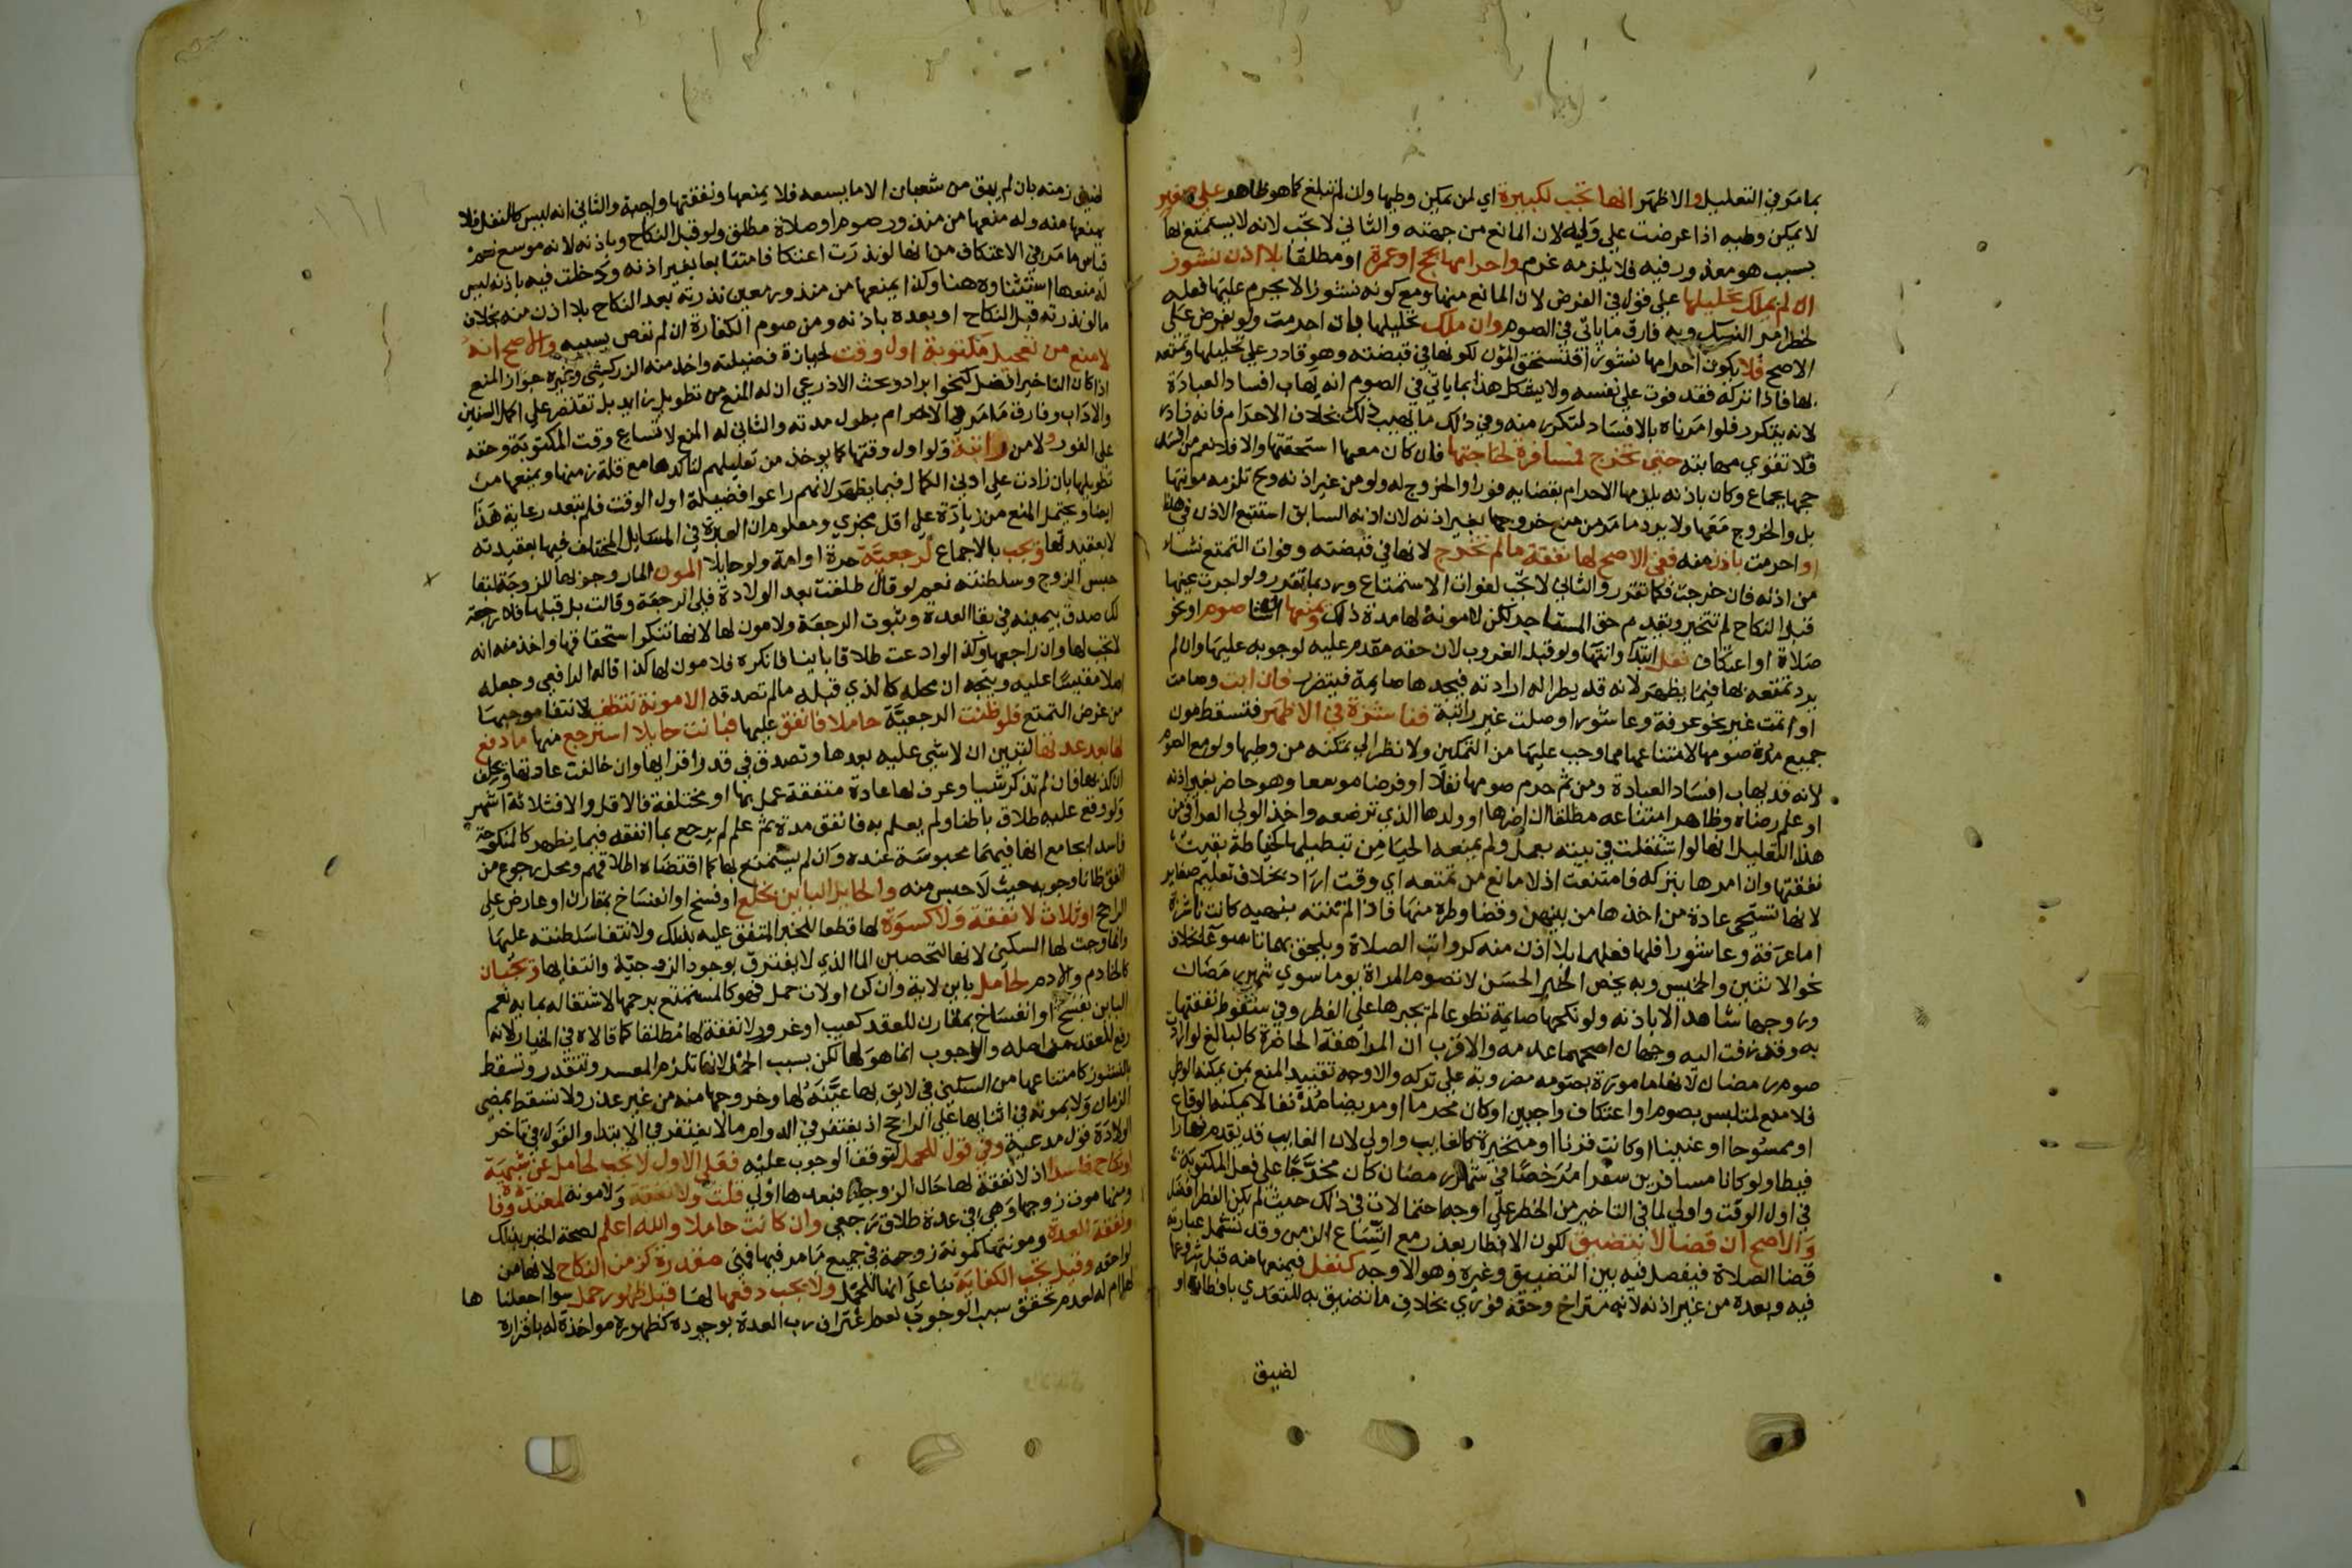 بما مر في التعليل والاظهر انها تجب لكبيرة اي لمن يمكن وطيها وان لم تبلغ كما هو ظاهر علي صغير
لا يمكن وطيه اذا عرضت علي وليه لان المانع من جهته والثاني لا تجب لانه لا يستمتع بها
بسبب هو معذور فيه فلا يلزمه غرم واحرامها بحج او عمرة او مطلقا بلا اذن نشوز
ان لم يملك تحليلها علي قول في الفرض لان المانع منها ومع كونه نشوزا لا يحرم عليها فعله
لخطر امر النسك وبه فارق ما ياتي في الصوم وان ملك تحليلها بان احرمت ولو بفرض علي
الاصح فلا يكون احرامها نشوزا فتستحق المون لكونها في قبضته وهو قادر علي تحليلها وتمتعه
بها فاذا تركه فقد فوت علي نفسه ولا يشكل هذا بما ياتي في الصوم انه يهاب افساد العبادة
لانه يتكرر فلو امرناه بالافساد لتكرر منه وفي ذلك ما يهيب ذلك بخلاف الاحرام فانه نادر
فلا تقوي مهابته حتى تخرج فمسافرة لحاجتها فان كان معها استحقتها والا فلا نعم من افسد
حجها بجماع وكان باذنه يلزمها الاحرام بقضايه فورا والخروج له ولو من غير اذنه وح تلزمه مونتها
بل والخروج معها ولا يرد ما مر من منع خروجها بغير اذنه لان اذنه السابق استتبع الاذن في هذا
او احرمت باذن منه ففي الاصح لها نفقة ما لم تخرج لانها في قبضته وفوات التمتع نشا
من اذنه فان خرجت فكما تقرر والثاني لا تجب لفوات الاستمتاع ورد بما تقرر ولو اجرت عينها
قبل النكاح لم تتخير ويقدم حق المستاجر لكن لا مونة لها مدة ذلك ويمنعها انشا صوم او نحو
صلاة او اعتكاف نفل ابتدا وانتها ولو قبل الغروب لان حقه مقدم عليه لوجوبه عليها وان لم
يرد تمتعه بها فيما يظهر لانه قد يطرا له ارادته فيجدها صايمة فيتضرر فان ابت وصامت
او اتمت غير نحو عرفة وعاشورا او صلت غير راتبة فناشزة في الاظهر فتسقط مون
جميع مدة صومها لامتناعها مما وجب عليها من التمكين ولا نظر الي تمكنه من وطيها ولو مع الصوم
لانه قد يهاب افساد العبادة ومن ثم حرم صومها نفلا او فرضا موسعا وهو حاضر بغير اذنه
او علم رضاه وظاهر امتناعه مطلقا ان اضرها او ولدها الذي ترضعه واخذ الولي العراقي من
هذا التعليل انها لو اشتغلت في بيته بعمل ولم يمنعه الحيا من تبطيلها كخياطة بقيت
نفقتها وان امرها بتركه فامتنعت اذ لا مانع من تمتعه اي وقت اراد بخلاف تعليم صغاير
لانها تستحي عادة من اخذها من بينهن وقضا وطره منها فاذا لم تنته بنهيه كانت ناشزة
اما عرفة وعاشورا فلها فعلهما بلا اذن منه كرواتب الصلاة ويلحق بهما تاسوعا بخلاف
نحو الاثنين والخميس وبه يخص الخبر الحسن لا تصوم المراة يوما سوي شهر رمضان
وزوجها شاهد الا باذنه ولو نكحها صايمة تطوعا لم يجبرها علي الفطر وفي سقوط نفقتها
به وقد زفت اليه وجهان اصحهما عدمه والاقرب ان المراهقة الحاضرة كالبالغ لو اراد
صوم رمضان لانها مامورة بصومه مضروبة علي تركه والاوجه تقييد المنع بمن يمكنه الوطي
فلا منع لمتلبس بصوم او اعتكاف واجبين او كان محرما او مريضا مدنفا لا يمكنه الوقاع
او ممسوحا او عنينا او كانت قرنا او متحيرة كالغايب واولي لان الغايب قد يقدم نهارا
فيطا ولو كانا مسافرين سفرا مرخصا في شهر رمضان كان مخرجا علي فعل المكتوبة
في اول الوقت واولي لما في التاخير من الخطر علي اوجه احتمالات في ذلك حيث لم يكن الفطر افضل
والاصح ان قضا لا يتضيق لكون الافطار بعذر مع اتساع الزمن وقد تشمل عبارته
قضا الصلاة فيفصل فيه بين التضييق وغيره وهو الاوجه كنفل فيمنعها منه قبل شروعها
فيه وبعده من غير اذنه لانه متراخ وحقه فوري بخلاف ما تضيق به للتعدي بافطاره او
لضيق
لضيق زمنه بان لم يبق من شعبان الا ما يسعه فلا يمنعها ونفقتها واجبة والثاني انه ليس كالنفل فلا
يمنعها منه وله منعها من منذور صوم او صلاة مطلق ولو قبل النكاح وباذنه لانه موسع نعم
قياس ما مر في الاعتكاف من انها لو نذرت اعتكافا متتابعا بغير اذنه ودخلت فيه باذنه ليس
له منعها استثناوه هنا وكذا يمنعها من منذور معين نذرته بعد النكاح بلا اذن منه بخلاف
ما لو نذرته قبل النكاح او بعده باذنه ومن صوم الكفارة ان لم نعص بسببه والاصح انه
لا منع من تعجيل مكتوبة اول وقت لحيازة فضيلته واخذ منه الزركشي وغيره جواز المنع
اذا كان التاخير افضل كنحو ابراد وبحث الاذرعي ان له المنع من تطويل زايد بل تقتصر علي اكمل السنن
والاداب وفارق ما مر في الاحرام بطول مدته والثاني له المنع لاتساع وقت المكتوبة وحقه
علي الفور ولا من راتبة ولو اول وقتها كما يوخذ من تعليلهم لتاكدها مع قلة زمنها ويمنعها من
تطويلها بان زادت علي ادني الكمال فيما يظهر لانهم راعوا فضيلة اول الوقت فلم تبعد رعاية هذا
ايضا ويحتمل المنع من زيادة علي اقل مجزي ومعلوم ان العبرة في المسايل المختلف فيها بعقيدته
لا بعقيدتها وتجب بالاجماع لرجعية حرة او امة ولو حايلا المون المار وجوبها للزوجة لبقا
حبس الزوج وسلطنته نعم لو قال طلقت بعد الولادة فلي الرجعة وقالت بل قبلها فلا رجعة
لك صدق بيمينه في بقا العدة وثبوت الرجعة ولا مون لها لانها تنكر استحقاقها واخذ منه انه
لا تجب لها وان راجعها وكذا لو ادعت طلاقا باينا فانكره فلا مون لها كذا قاله الرافعي وجعله
اصلا مقيسا عليه ويتجه ان محله كالذي قبله ما لم تصدقه الا مونة تنظف لانتفا موجبها
من غرض التمتع فلو ظنت الرجعية حاملا فانفق عليها فبانت حايلا استرجع منها ما دفع
لها بعد عدتها لتبين ان لا شي عليه بعدها وتصدق في قدر اقرايها وان خالفت عادتها وتحلف
ان كذبها فان لم تذكر شيا وعرف لها عادة متفقة عمل بها او مختلفة فالاقل والا فثلاثة اشهر
ولو وقع عليه طلاق باطنا ولم يعلم به فانفق مدة ثم علم لم يرجع بما انفقه فيما يظهر كالمنكوحة
فاسدا بجامع انها فيهما محبوسة عنده وان لم يستمتع بها كما اقتضاه اطلاقهم ومحل رجوع من
انفق ظانا وجوبه حيث لا حبس منه والحايل الباين بخلع او فسخ او انفساخ بمقارن او عارض علي
الراجح او ثلاث لا نفقة ولا كسوة لها قطعا للخبر المتفق عليه بذلك ولانتفا سلطنته عليها
وانما وجبت لها السكني لانها لتحصين الما الذي لا يفترق بوجود الزوجية وانتفايها وتجبان
كالخادم والادم لحامل باين لاية وان كن اولات حمل فهو كالمستمتع برحمها لاشتغاله بمايه نعم
الباين بفسخ او انفساخ بمقارن للعقد كعيب او غرور لا نفقة لها مطلقا كما قالاه في الخيار لانه
رفع للعقد من اصله والوجوب انما هو لها لكن بسبب الحمل لانها تلزم المعسر وتتقدر وتسقط
بالنشوز كامتناعها من السكني في لايق بها عينه لها وخروجها منه من غير عذر ولا تسقط بمضي
الزمان ولا بموته في اثنايها علي الراجح اذ يغتفر في الدوام ما لا يغتفر في الابتدا والقول في تاخر
الولادة قول مدعيه وفي قول للحمل لتوقف الوجوب عليه فعلي الاول لا تجب لحامل عن شبهة
او نكاح فاسد اذ لا نفقة لها حال الزوجية فبعدها اولي قلت ولا نفقة ولا مونة لمعتدة وفاة
ومنها موت زوجها وهي في عدة طلاق رجعي وان كانت حاملا والله اعلم لصحة الخبر بذلك
ونفقة العدة ومونتها كمونة زوجة في جميع ما مر فيها فهي مقدرة كزمن النكاح لانها من
لواحقه وقيل تجب الكفاية بنا علي انها للحمل ولا يجب دفعها لها قبل ظهور حمل سوا اجعلناها
لها ام له لعدم تحقق سبب الوجوب نعم اعتراف رب العدة بوجوده كظهوره مواخذة له باقراره